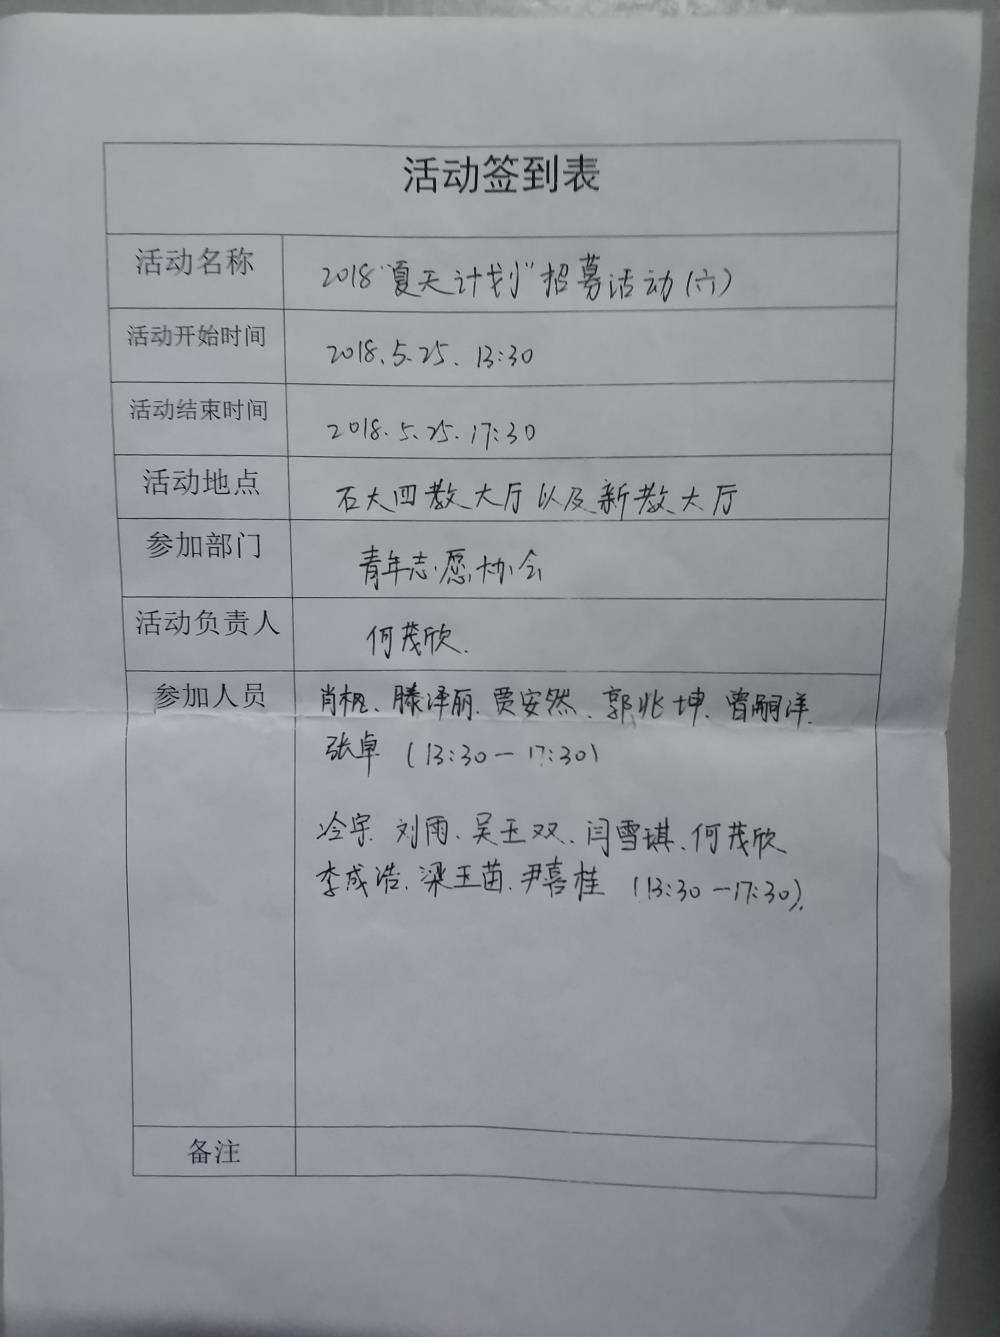 活动签到表
活动名称 2018"夏天计划"招募活动(六)
活动开始时间 2018.5.25. 13:30
活动结束时间 2018.5.25.17:30
活动地点 石大四教大厅以及新教大厅
参加部门 青年志愿协会
活动负责人 何茂欣.
参加人员 肖枫、滕泽丽.贾安然、郭兆坤.曾嗣洋.
张卓 (13:30—17:30)
冷宇.刘雨、吴玉双、闫雪琪、何茂欣
李成浩、梁玉苗.尹喜桂 (13:30—17:30).
备注